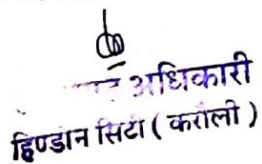 अधिकारी
हिण्डौन सिटी ( करौली )